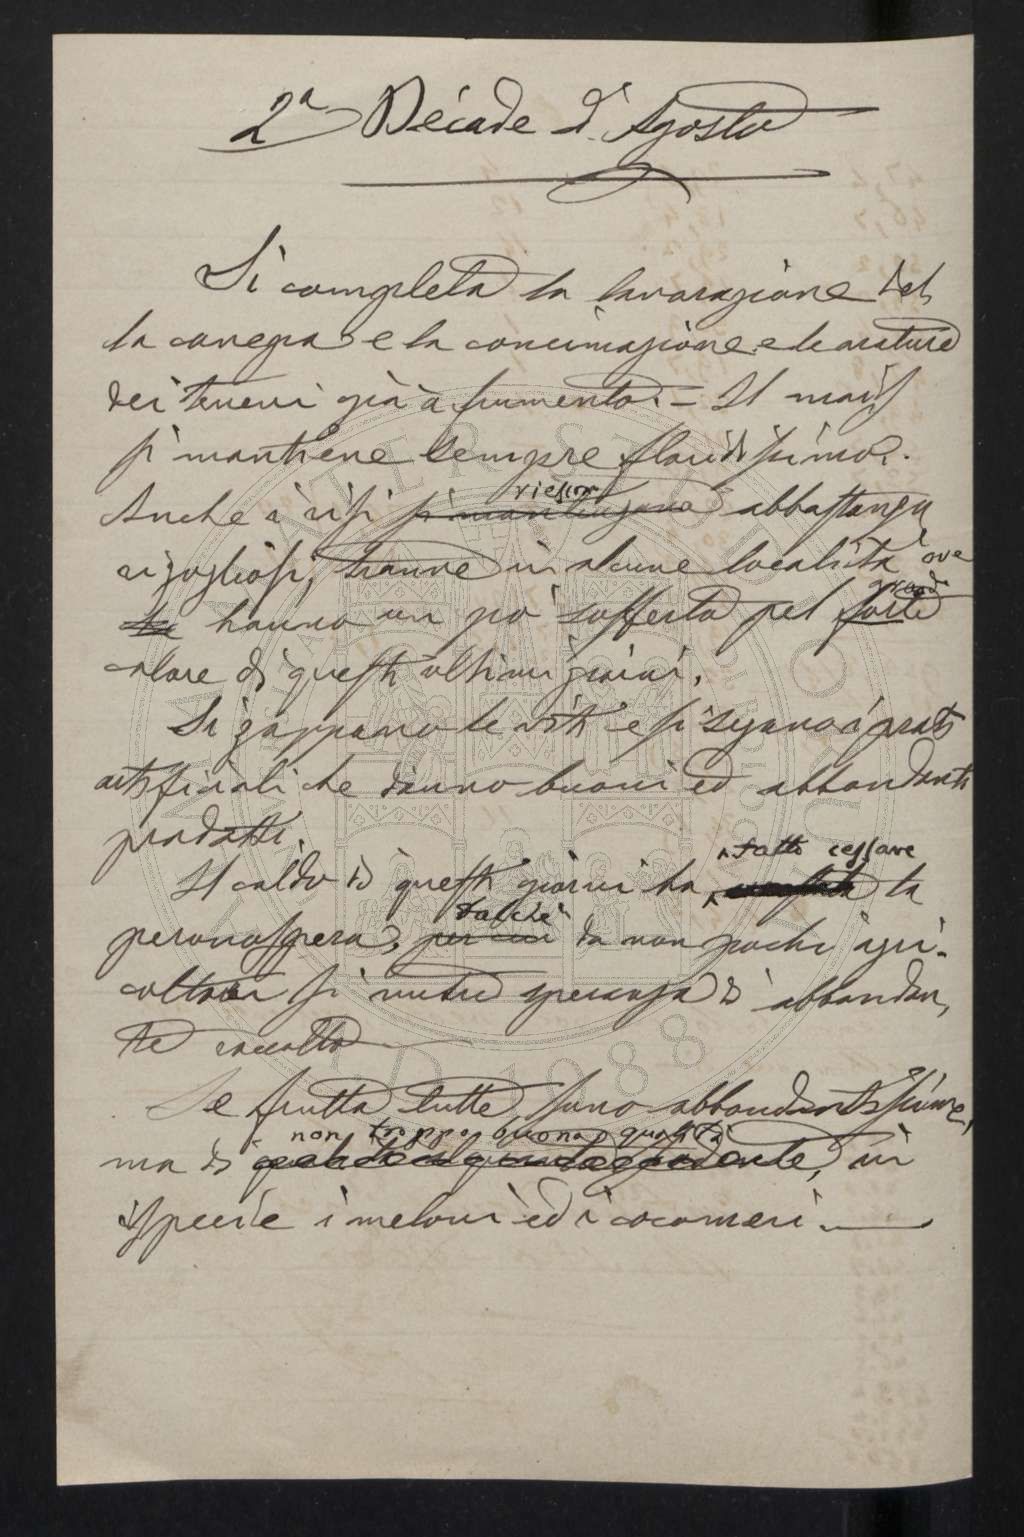 2ª Decade d'Agosto
Si completa la lavorazione del
la canepa e la concimazione e le arature
dei terreni già a frumento. = Il mais
si mantiene sempre floridissimo.
Anche i risi si mantengono riescon abbastanza
rigogliosi, tranne in alcune località ove
hanno un po' sofferto pel forte grand
calore di questi ultimi giorni.
Si zappano le viti e si segano i prati
artificiali che danno buoni ed abbondanti
prodotti.
Il caldo di questi giorni ha fatto cessare la
peronospera, per cui talchè da non pochi agri-
coltori si nutre speranza di abbondan,
te raccolto
Le frutta tutte, sono abbondantissime,
ma di non troppo buona qualità, in
ispecie i meloni ed i cocomeri.